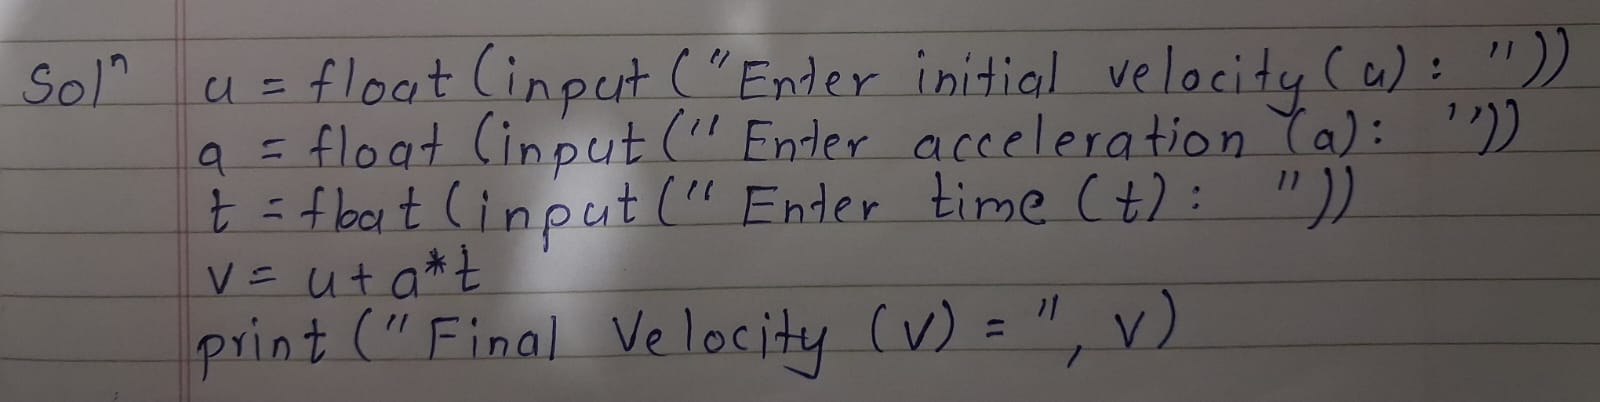 Solⁿ u = float (input ("Enter initial velocity (u) : "))
a = float (input (" Enter acceleration (a) : "))
t = float (input (" Enter time (t) : "))
v = u + a*t
print (" Final Velocity (v) = ", v)